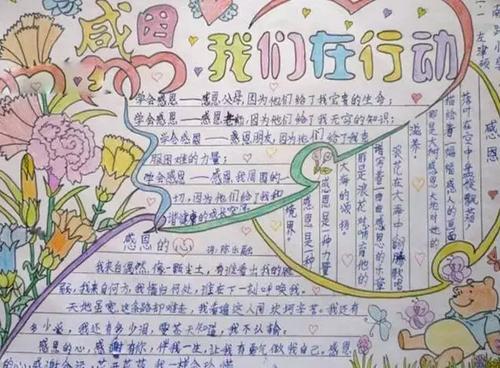 感恩
我们在行动
学会感恩——感恩父母,因为他们给了我宝贵的生命;
学会感恩——感恩老师,因为他们给了我无穷的知识;
学会感恩——感恩朋友,因为他们给了我克
服困难的力量;
学会感恩——感恩我周围的一
切,因为他们给了我和
谐健康的成长空
感恩
落叶在空中盘旋飘荡,
描绘着一幅幅感人的画面
那是大树感恩大地对她的
滋养。
浪花在大海中翻腾歌唱
谱写着一曲曲感恩的乐章
那是浪花对哺育他的
大海的诚挚。
感恩是一种力量
感恩是一种
境界!
感恩的心
词:陈乐融
我来自偶然,像一颗尘土,有谁看出我的脆
弱,我来自何方,我情归何处,谁在下一刻呼唤我。
天地虽宽,这条路却难走,我看遍这人间坎坷辛苦。我还有
多少爱,我还有多少泪,要苍天知道,我不认输。
感恩的心,感谢有你,伴我一生,让我有勇气做我自己,感恩
的心,感谢命运,花开花落,我一样会珍惜